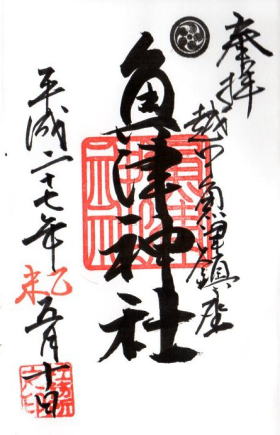 奉拝
越中魚津鎮座
魚津神社
平成二十七年
乙未
五月十日